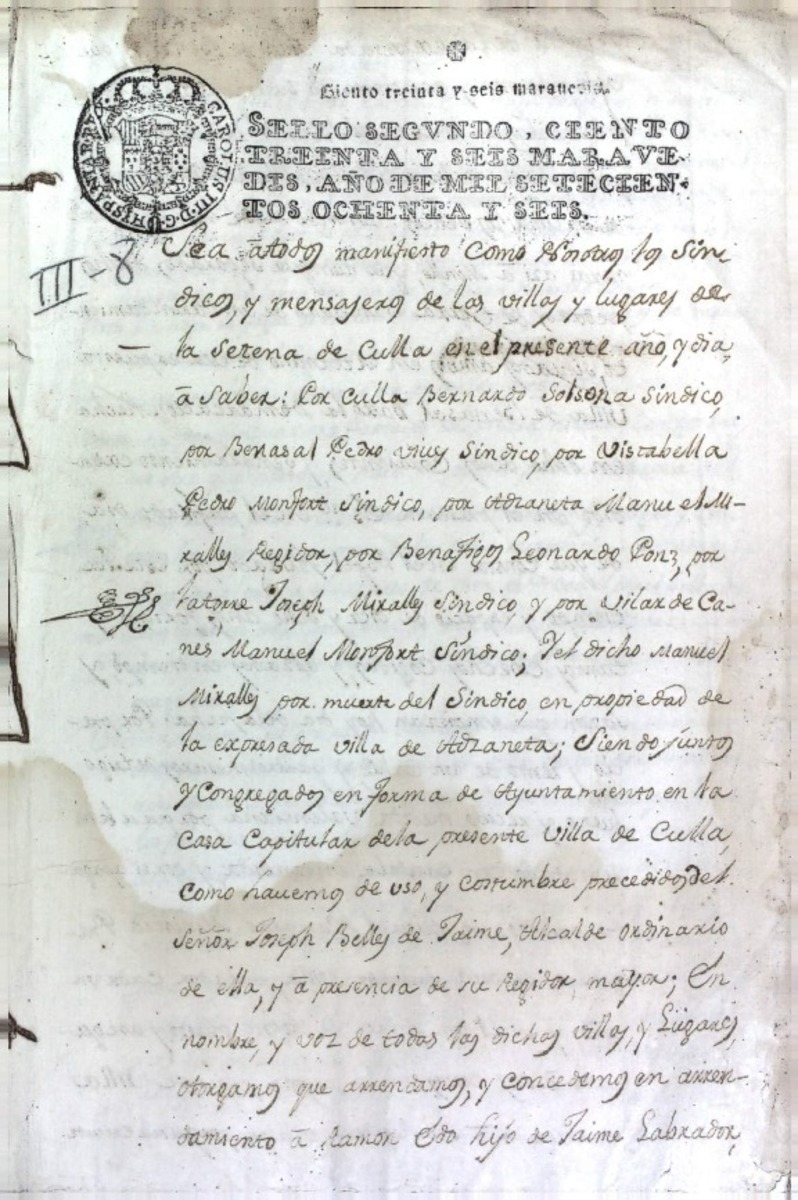 Ciento treinta y seis maravedis.
SELLO SEGVNDO, CIENTO
TREINTA Y SEIS MARAVE-
DIS, AÑO DE MIL SETECIEN-
TOS OCHENTA Y SEIS.
CAROLUS III D.G. HISPANIAR REX
III-8
Sea ātodos manifiesto como Nosotros los Sin-
dicos, y mensajeros de las villas y lugares de
la Setena de Culla en el presente año, y dia,
ā Saber: Por Culla Bernardo Solsona Sindico,
por Benasal Pedro Vives Sindico, por Vistabella
Pedro Monfort Sindico, por Adzaneta Manuel Mi-
ralles Regidor, por Benafigos Leonardo Ponz, por
la torre Joseph Miralles Sindico, y por Vilar de Ca-
nes Manuel Monfort Sindico; Yel dicho Manuel
Miralles por muerte del Sindico, en propiedad de
la expresada villa de Adzaneta; Siendo juntos
y Congregados en forma de Ayuntamiento en la
Casa Capitular dela presente Villa de Culla,
como havemos de uso, y costumbre precedidos del
Señor Joseph Belles de Jaime, Alcalde ordinario
de ella, y ā presencia de su Regidor mayor; En
nombre, y voz de todas las dichas villas, y Lugares,
otorgamos que arrendamos, y concedemos en arren-
damiento ā Ramon Edo hijo de Jaime Labrador,